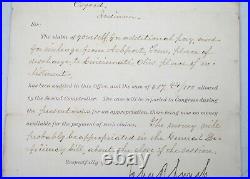 Oxford,
Indiana.
Sir:
The claim of yourself for additional pay, and
for mileage from Ashport, Tenn, place of
discharge, to Cincinnati Ohio place of en-
listment
has been settled in this Office, and the sum of $17 84/100
allowed by the Second Comptroller. The case will be reported to Congress during
the present session for an appropriation, there being now no money
available for the payment of such claims. The money will
probably be appropriated in the General De-
ficiency bill, about the close of the session.
Respectfully